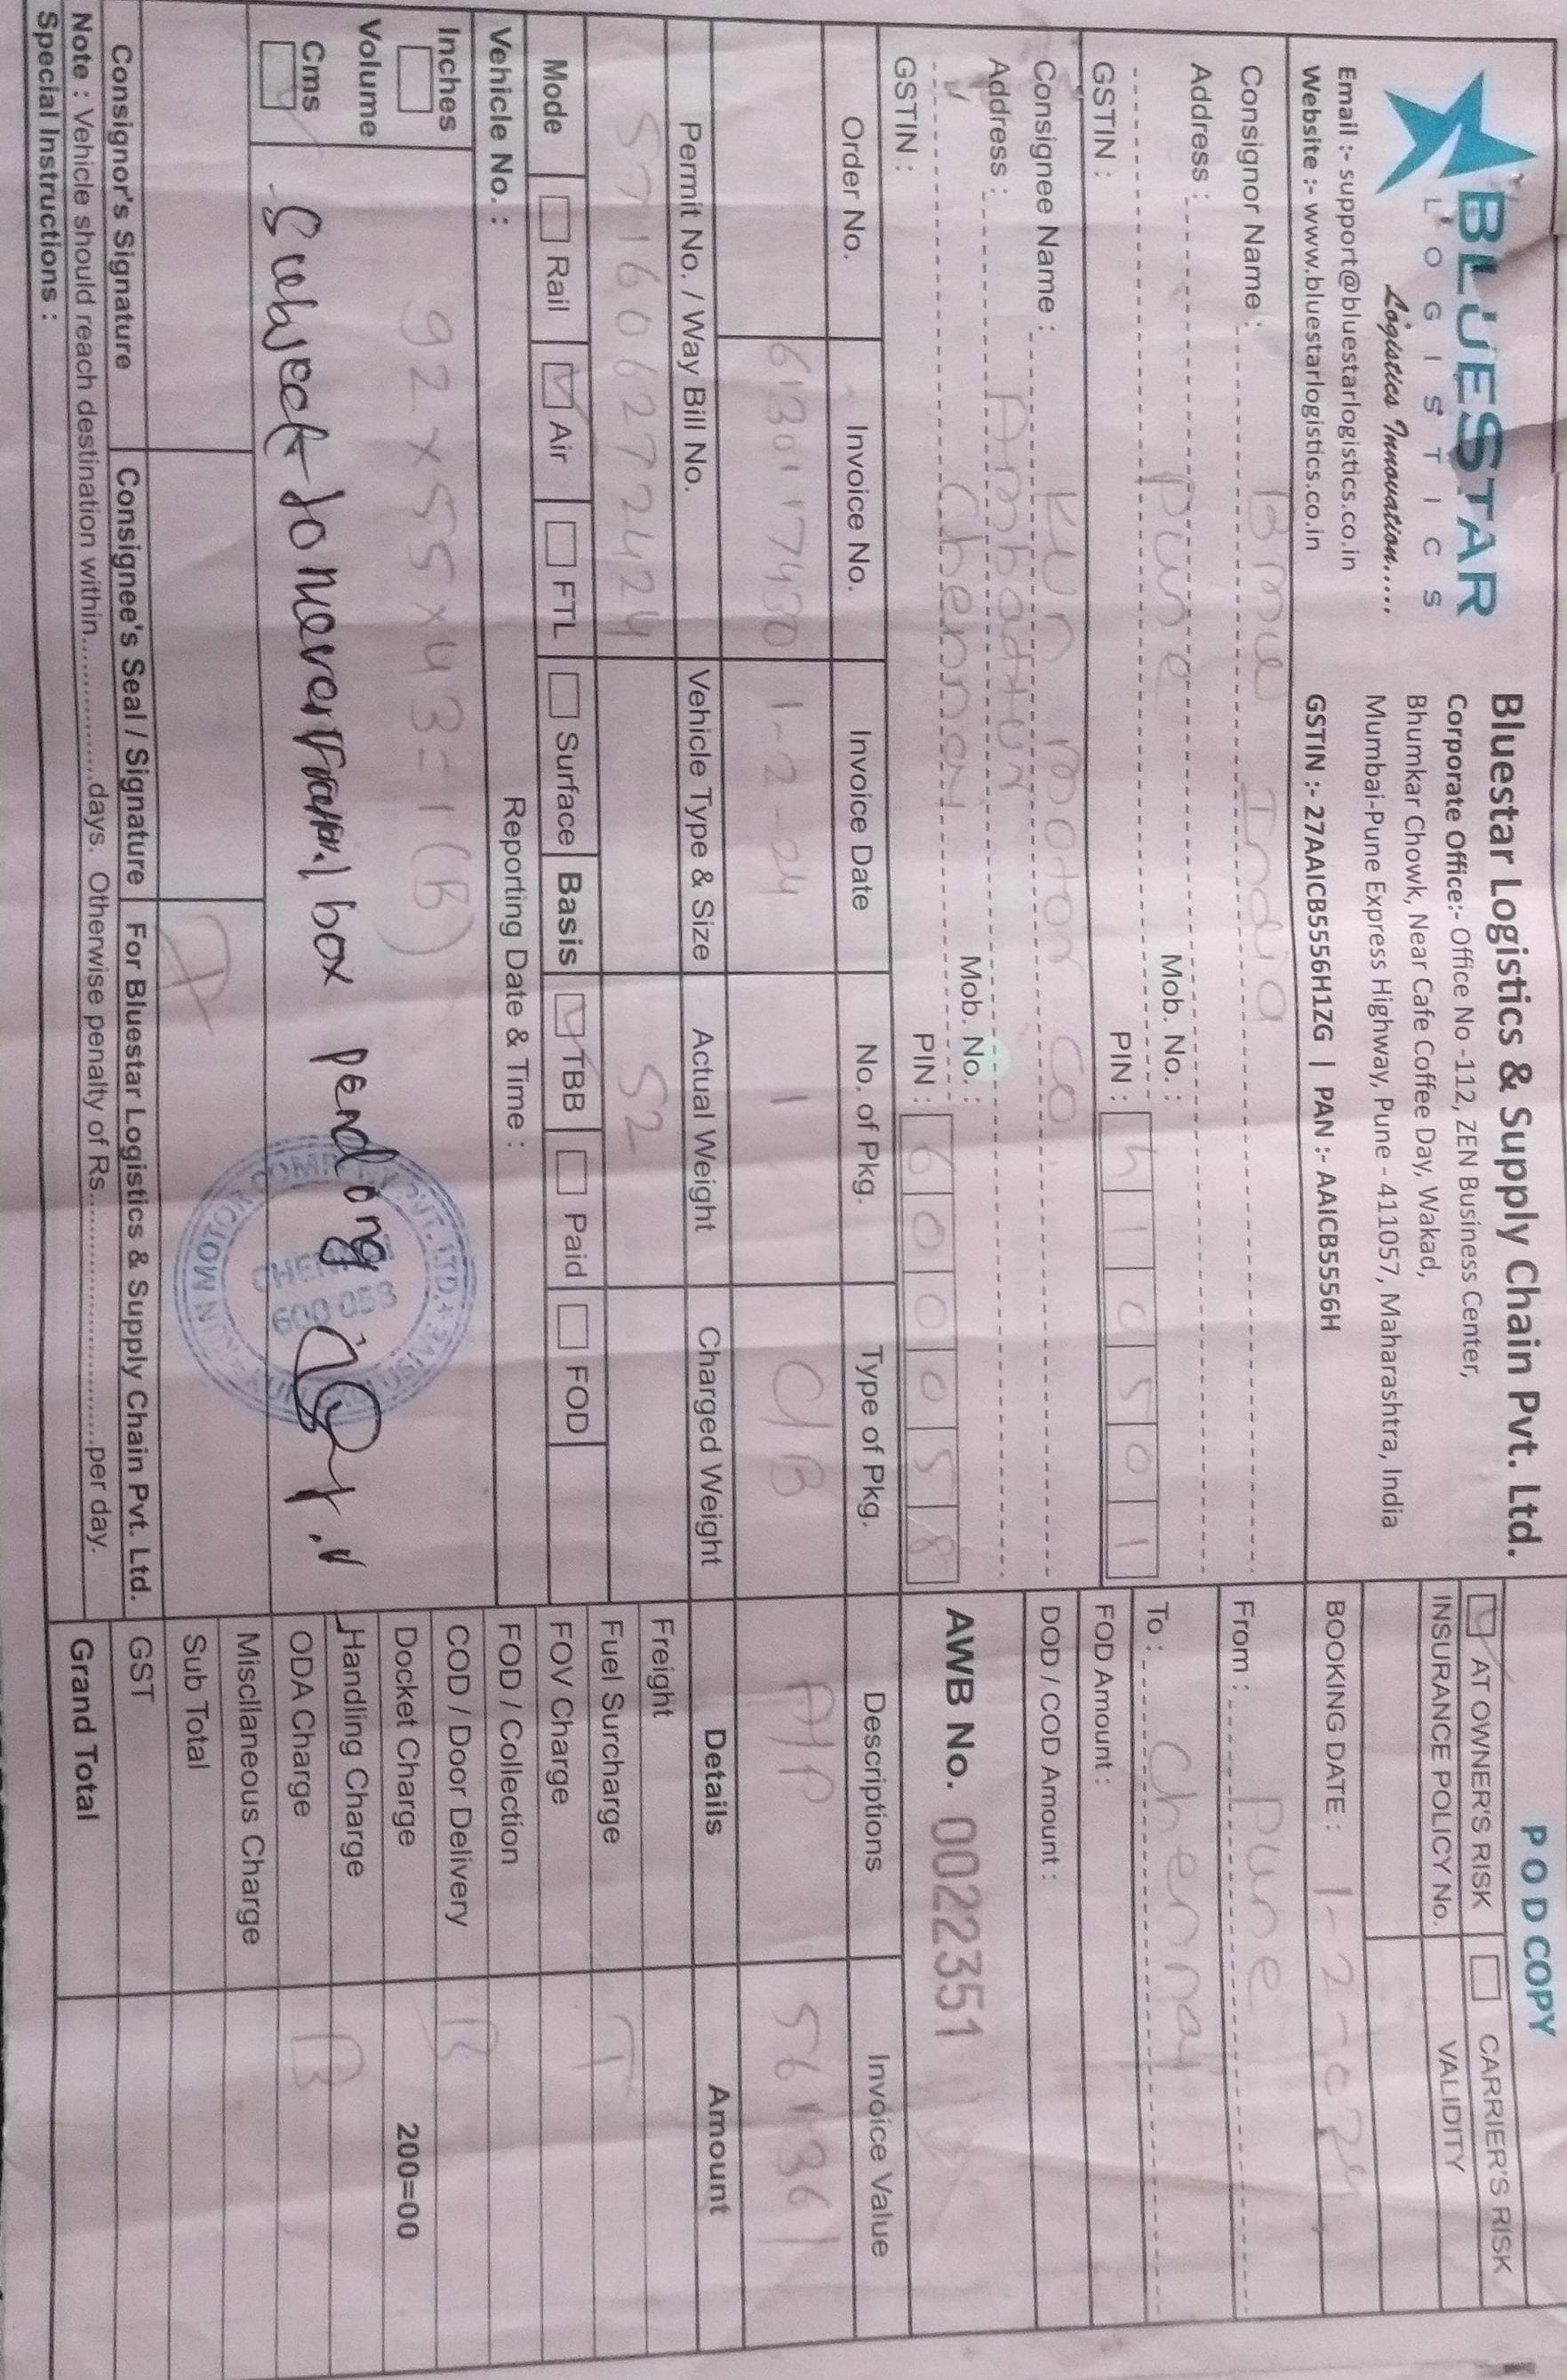 BLUESTAR
LOGISTICS
Logistics Innovation.....
Email :- support@bluestarlogistics.co.in
Website :- www.bluestarlogistics.co.in
Bluestar Logistics & Supply Chain Pvt. Ltd.
Corporate Office:- Office No -112, ZEN Business Center,
Bhumkar Chowk, Near Cafe Coffee Day, Wakad,
Mumbai-Pune Express Highway, Pune - 411057, Maharashtra, India
GSTIN :- 27AAICB5556H1ZG | PAN :- AAICB5556H
POD COPY
AT OWNER'S RISK CARRIER'S RISK
INSURANCE POLICY No. VALIDITY
BOOKING DATE : 1-2-024
Consignor Name : BMW India
Address :
Pune Mob. No. :
GSTIN : PIN : 410501
From : Pune
To : Chennai
FOD Amount :
DOD / COD Amount :
Consignee Name : KUN Motor CO
Address : Ambattur
Chennai Mob. No. :
GSTIN : PIN : 600058
AWB No. 0022351
Order No. Invoice No. Invoice Date No. of Pkg. Type of Pkg. Descriptions Invoice Value
6130117430 1-2-24 1 C/B A/P 561361
Permit No. / Way Bill No. Vehicle Type & Size Actual Weight Charged Weight Details Amount
571606272424 52
Freight
Fuel Surcharge T
FOV Charge
FOD / Collection
COD / Door Delivery B
Docket Charge 200=00
Handling Charge
ODA Charge B
Miscllaneous Charge
Sub Total
GST
Grand Total
Mode Rail Air FTL Surface Basis TBB Paid FOD
Vehicle No. : Reporting Date & Time :
Inches
Volume
Cms
92x55x43=1(B)
Subject to box pending
Consignor's Signature Consignee's Seal / Signature For Bluestar Logistics & Supply Chain Pvt. Ltd.
Note : Vehicle should reach destination within................days. Otherwise penalty of Rs............................per day.
Special Instructions :